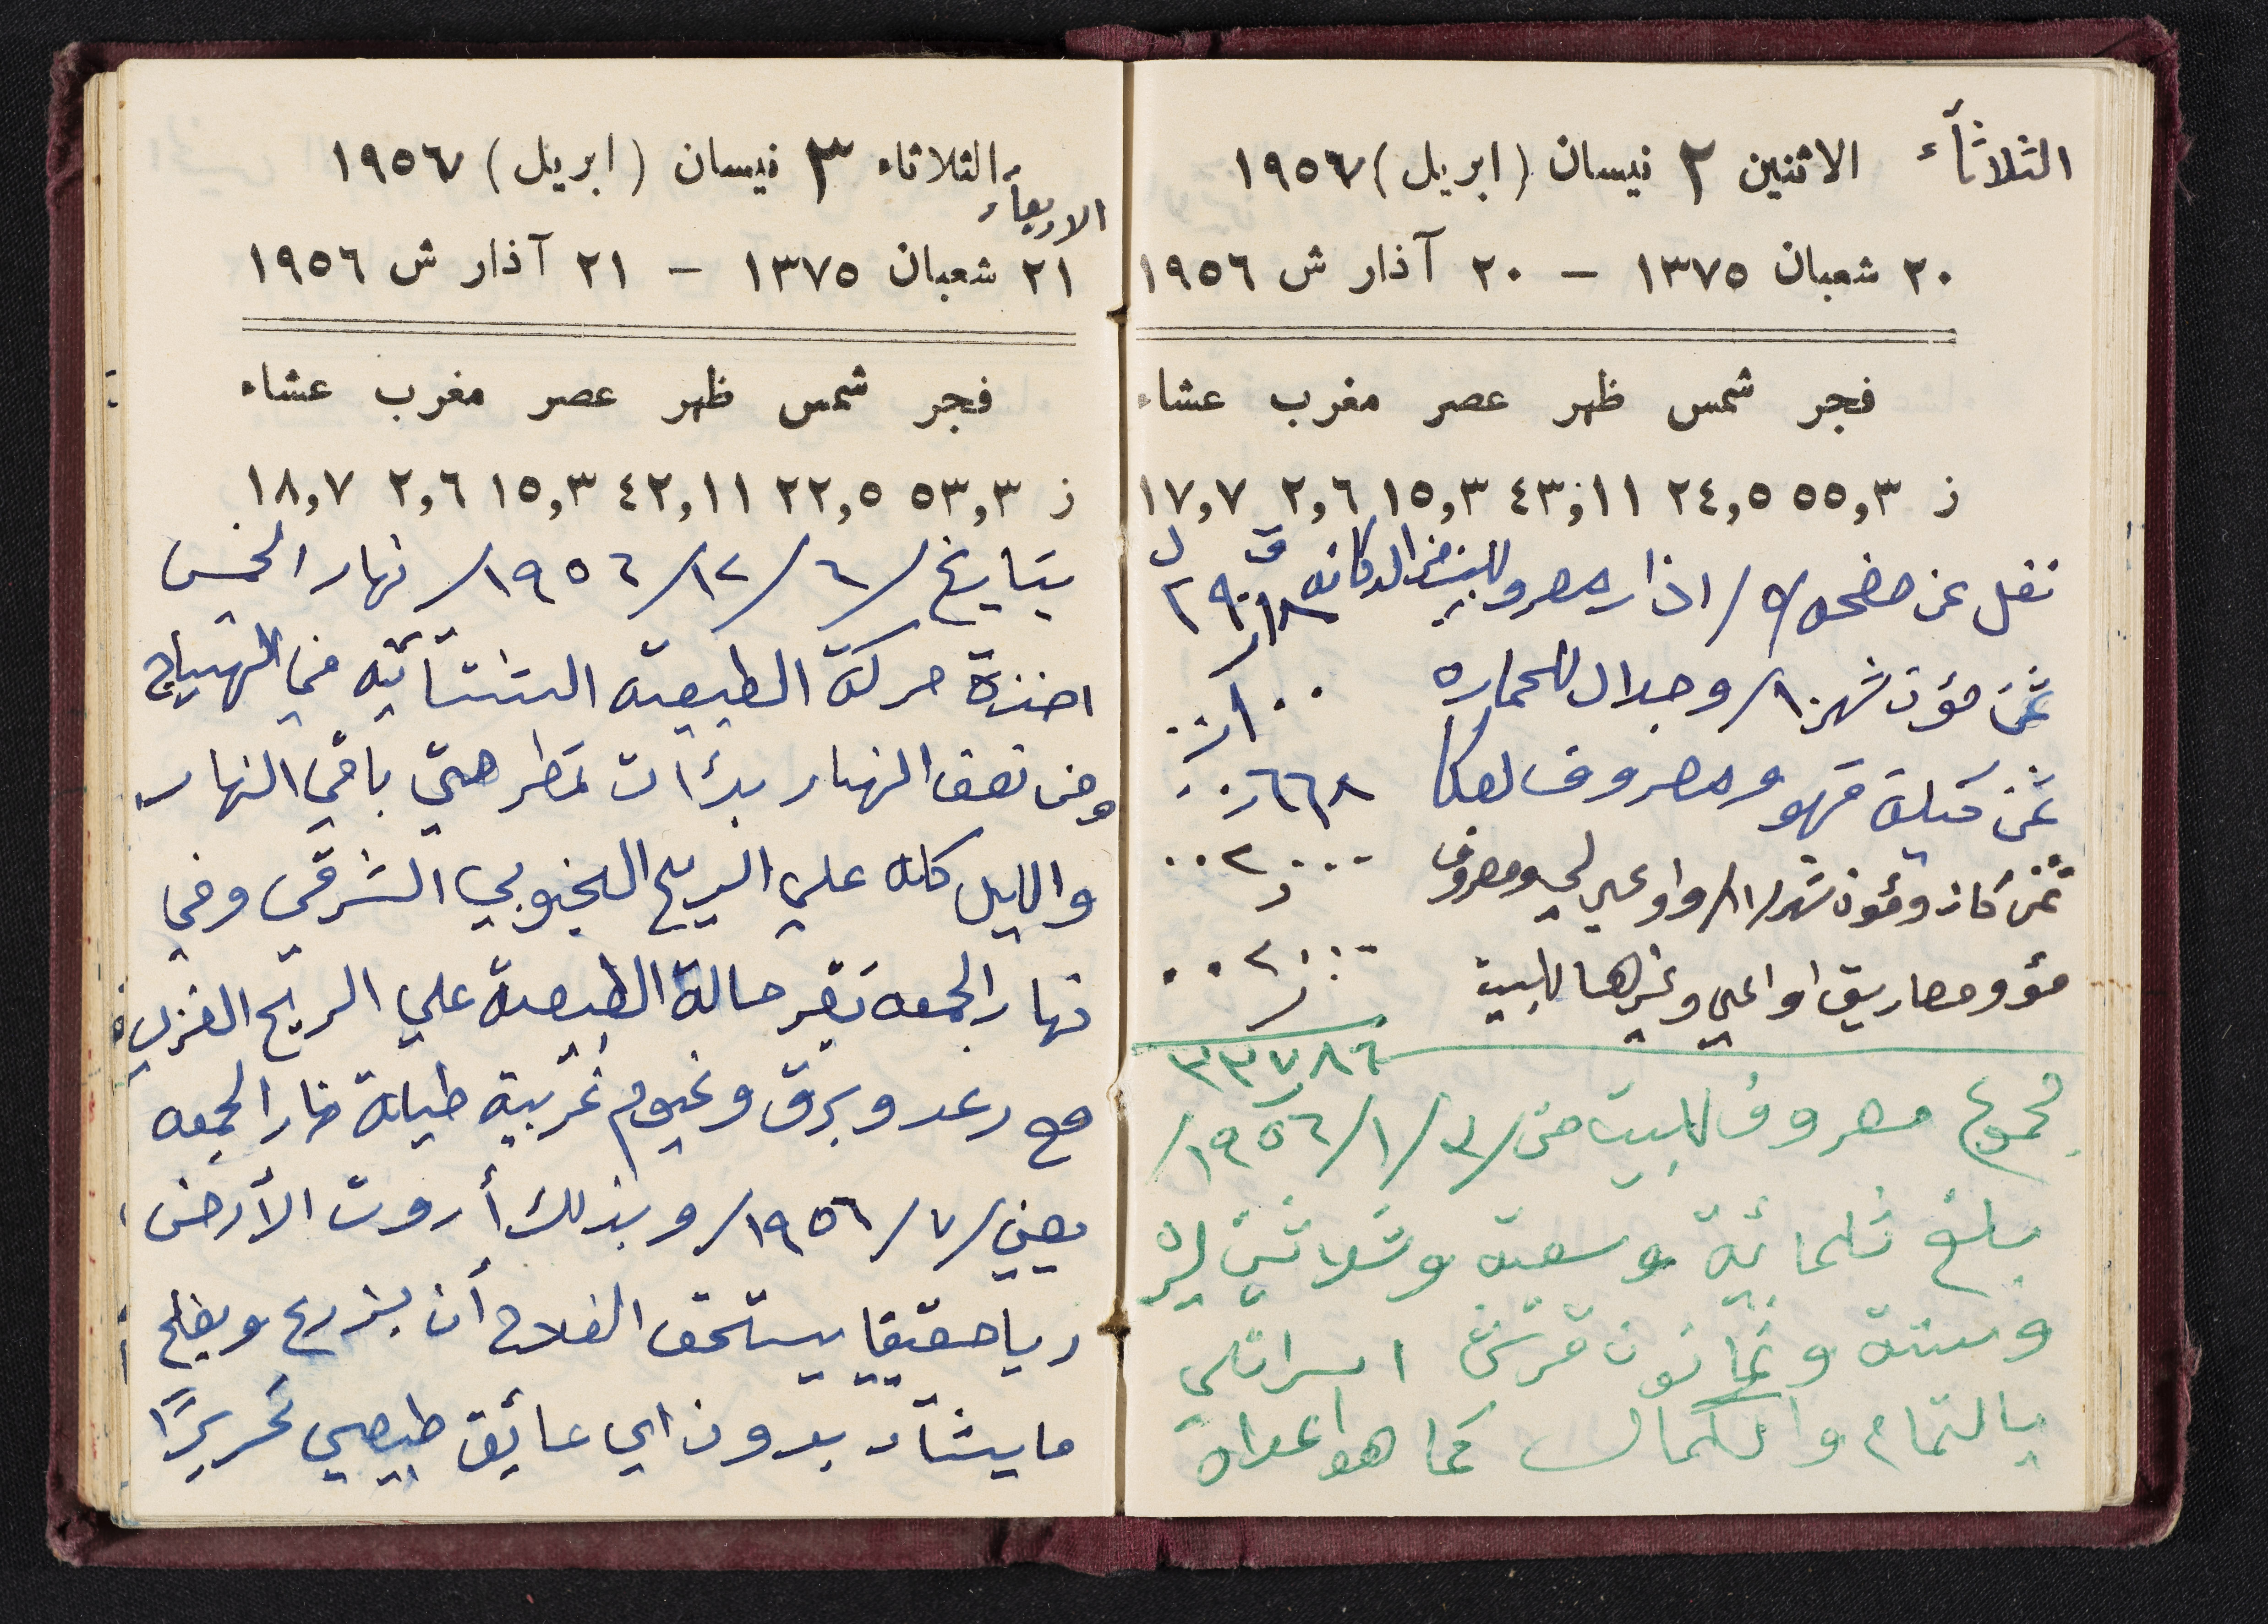 الثلاثآء الاثنين ٢ نيسان (ابريل) ١٩٥٧
٢٠ شعبان ١٣٧٥ – ٢٠ آذار ش ١٩٥٦
فجر شمس ظهر عصر مغرب عشاء
ز ٥٥,٣ ٢٤,٥ ٤٣,١١ ١٥,٣ ٢,٦ ١٧,٧
ق ل
نقل عن صفحه /٥/ اذار مصروف للبيت من الدكانه
ثمن مؤن شهر /١٠/ وجلال للحماره ١٠٠
ثمن قهو ومصروف لعكا ٦٦٨
ثمن كاز ومؤن شهر /١١/ واواعي لي ومصروف ٢٠٠٠
مؤو مصاريق اواعي وغيرها للبيت ٢٠٠٠
٣٣٧٨٦
مجموع مصروف للبيت من /٣/١/١٩٥٦/
بلغ ثلمائية وسبعة وثلاثين ليره
وستة وثمانون قرش اسرائلي
بالتمام والكمال كما هو اعلاه
الثلاثاء ٣ نيسان (ابريل) ١٩٥٧
الاربعآء
٢١ شعبان ١٣٧٥ – ٢١ آذار ش ١٩٥٦
فجر شمس ظهر عصر مغرب عشاء
ز ٥٣,٣ ٢٢,٥ ٤٢,١١ ١٥,٣ ٢,٦ ١٨,٧
بتايخ /٦/١٢/١٩٥٦/ نهار الخمس
اخذة حركة الطبيعة الشتآئيه في الهياج
ومن نصف النهار بدأت تمطر حتي باقي النهار
والليل كانه علي الريح الجنوبي الشرقي وفي
نهار الجمعه تغير حالة الطبيعة علي الريح الغربي
مع رعد وبرق وغيوم غربية طيلة نهار الجمعه
يعني /٧/١٩٥٦/ وبذلك أروت الأرض
ريا حقيقيا يستحق الفلاح أن يزرع ويفلح
ما يشآء بدون اي عائيق طبيعي تحريرًا